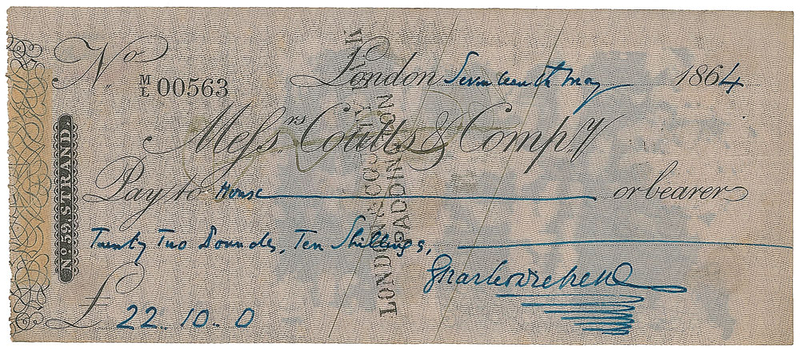 No M/L 00563 London Seventeenth May 1864
Messrs Coutts & Compy
Pay to House or bearer
Twenty Two Pounds, Ten Shillings,
Charles Dickens
£ 22..10..0
No 59, STRAND.
LONDON & COUNTY
PADDINGTON